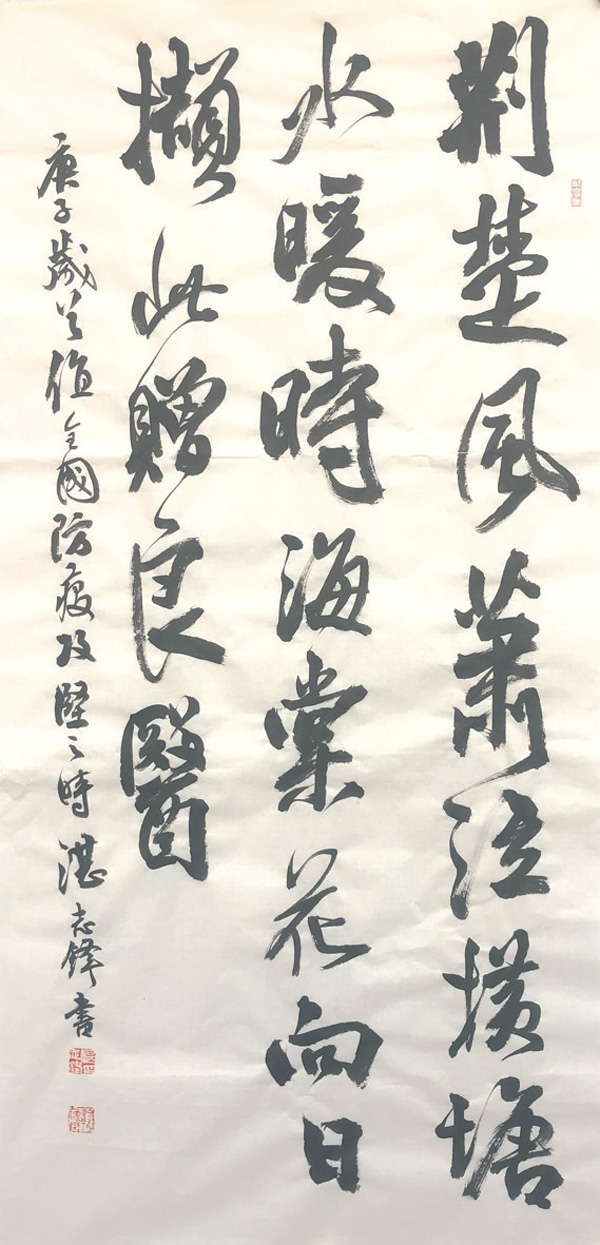 荆楚風蕭泣橫塘
水暖時海棠花向日
擷此贈良醫
庚子歲首值全國防疫攻堅之時湛志鋒書